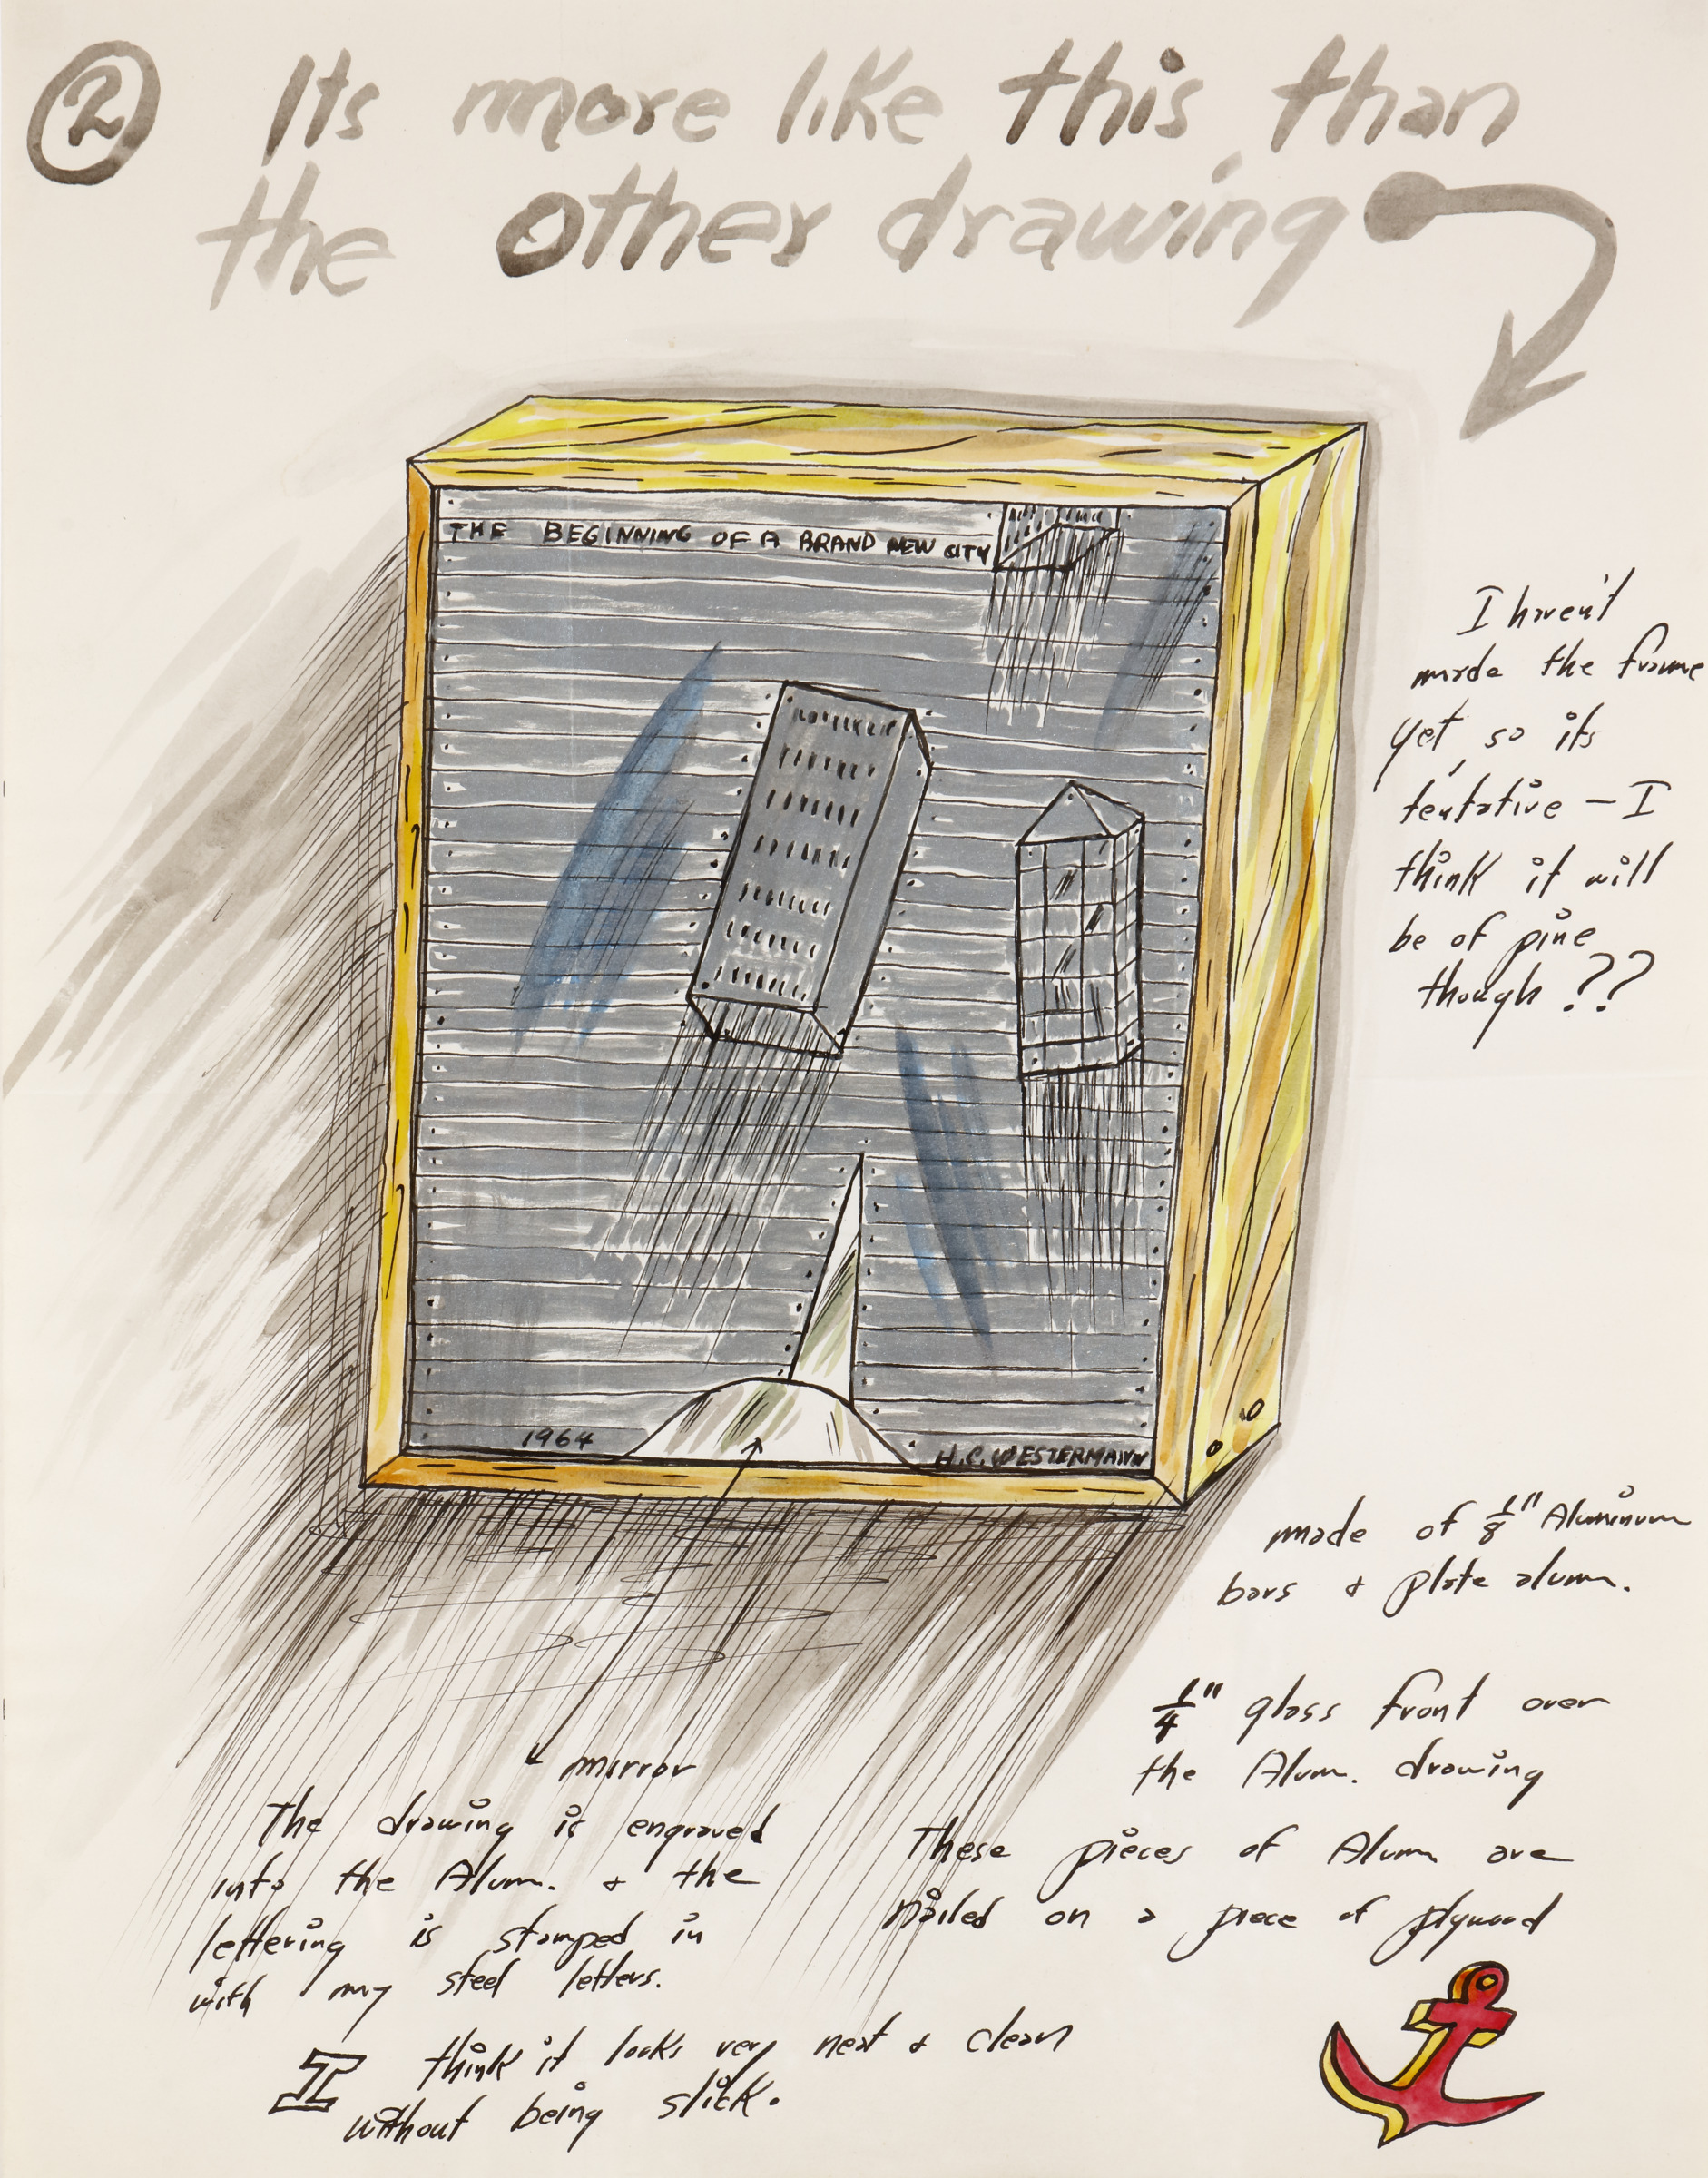 2 Its more like this than
the other drawing
THE BEGINNING OF A BRAND NEW CITY
I haven't
made the frame
yet, so its
tentative – I
think it will
be of pine
though ??
1964
H.C. WESTERMANN
made of 1/8" Aluminum
bars & plate alum.
1/4" glass front over
the Alum. drawing
mirror
The drawing is engraved
into the Alum. & the
lettering is stamped in
with my steel letters.
These pieces of Alum are
nailed on a piece of plywood
I think it looks very neat & clean
without being slick.